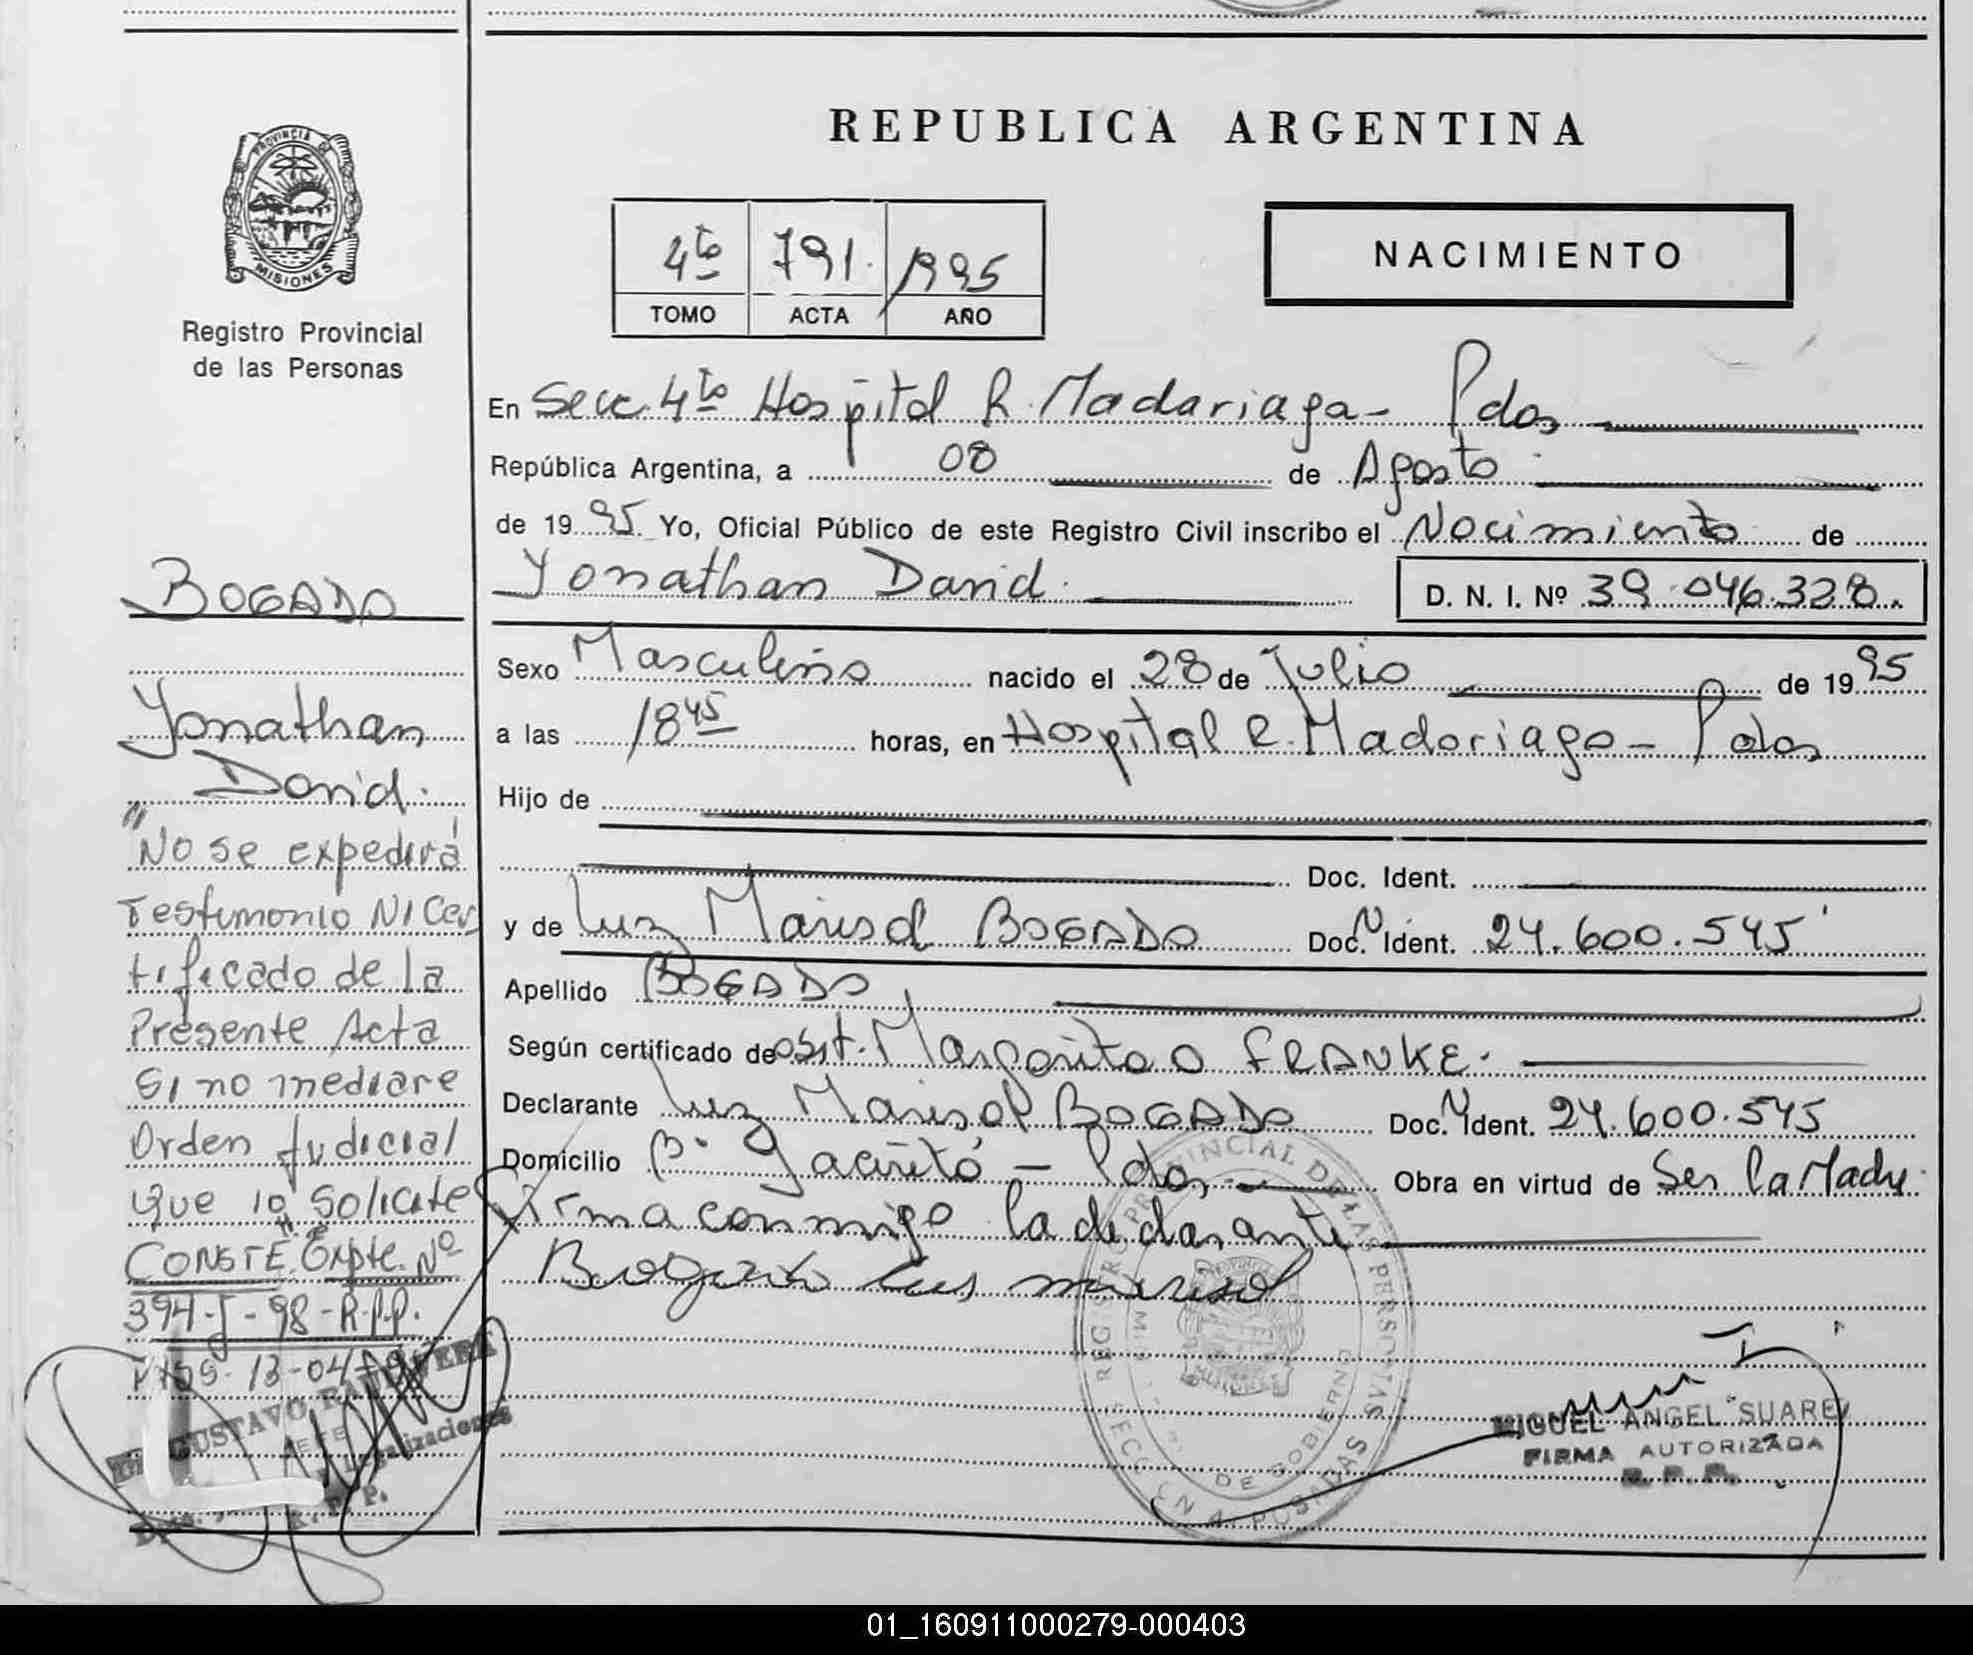 PROVINCIA DE
MISIONES
Registro Provincial
de las Personas
REPUBLICA ARGENTINA
4to 791. 1995
TOMO ACTA AÑO
NACIMIENTO
En Secc. 4to Hospital R. Madariaga - Pdas
República Argentina, a 08 de Agosto
de 1995 Yo, Oficial Público de este Registro Civil inscribo el Nacimiento de
Yonathan David. D. N. I. Nº 39.046.328.
Sexo Masculino nacido el 28 de Julio de 1995
a las 18 45 horas, en Hospital R. Madariaga - Pdas
Hijo de
Doc. Ident.
y de Luz Marisol BOGADO Doc. Ident. 24.600.545
Apellido BOGADO
Según certificado de obst. Margarita O FRANKE.
Declarante Luz Marisol BOGADO Doc. Ident. 24.600.545
Domicilio Bº Yacireto - Pdas Obra en virtud de Ser la Madre.
Firma conmigo la declarante
Bogado Luz marisol
BOGADO
Yonathan
David.
"No se expedirá
Testimonio NI Cer
tificado de la
Presente Acta
Si no mediare
Orden Judicial
Que lo Solicite"
CONSTE. Expte. Nº
394-J-98-R.P.P.
13-04-
GUSTAVO
JEFE
R. P. P.
REGISTRO PROVINCIAL DE LAS PERSONAS
DE GOBIERNO
SECCION 4 POSADAS
MIGUEL ANGEL SUAREZ
FIRMA AUTORIZADA
R. P. P.
01_160911000279-000403